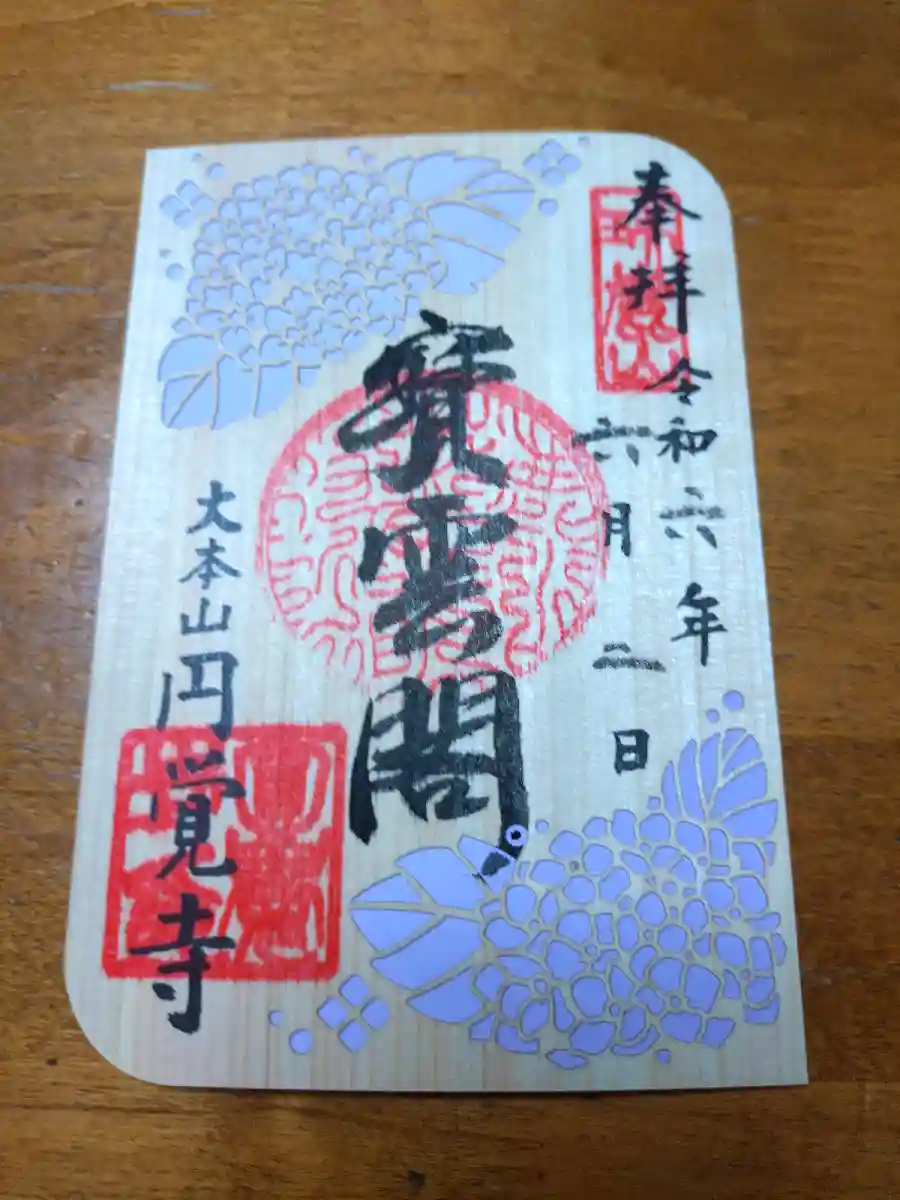 奉拝 令和六年
六月二日
寳雲閣
大本山
円覚寺